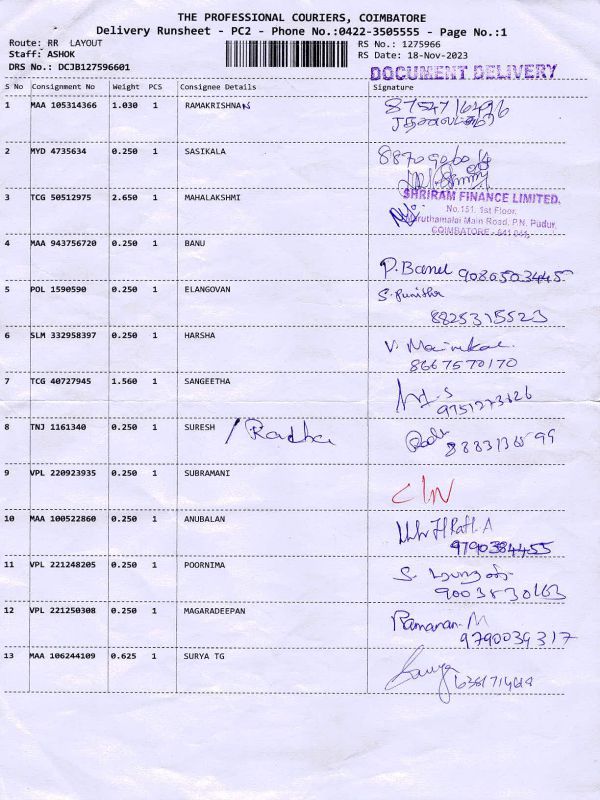 THE PROFESSIONAL COURIERS, COIMBATORE
Delivery Runsheet - PC2 - Phone No.:0422-3505555 - Page No.:1
Route: RR LAYOUT RS No.: 1275966
Staff: ASHOK RS Date: 18-Nov-2023
DRS No.: DCJB127596601
DOCUMENT DELIVERY
S No Consignment No Weight PCS Consignee Details Signature
1 MAA 105314366 1.030 1 RAMAKRISHNAN
2 MYD 4735634 0.250 1 SASIKALA
3 TCG 50512975 2.650 1 MAHALAKSHMI
SHRIRAM FINANCE LIMITED.
No.151, 1st Floor,
Maruthamalai Main Road, P.N. Pudur,
COIMBATORE - 641 041.
4 MAA 943756720 0.250 1 BANU
P. Banu 9086503445
5 POL 1590590 0.250 1 ELANGOVAN
S. Punitha
8825315523
6 SLM 332958397 0.250 1 HARSHA
8667570170
7 TCG 40727945 1.560 1 SANGEETHA
8 TNJ 1161340 0.250 1 SURESH / Radha
9 VPL 220923935 0.250 1 SUBRAMANI
10 MAA 100522860 0.250 1 ANUBALAN
9790384455
11 VPL 221248205 0.250 1 POORNIMA
9003830163
12 VPL 221250308 0.250 1 MAGARADEEPAN
Ramanan. M
9790039317
13 MAA 106244109 0.625 1 SURYA TG
Surya